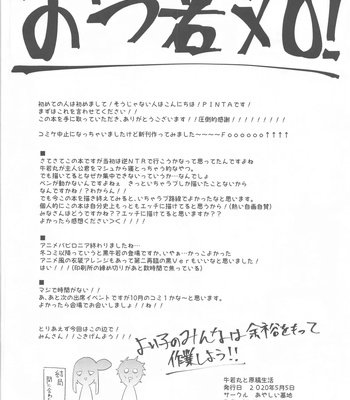 おつ若XO!
初めての人は初めまして!そうじゃない人はこんにちは!PINTAです!
まずはこれを言わせてください!!
この本を手に取っていただき、ありがとうございます!!圧倒的感謝!!!!!!!!!
コミケ中止になっちゃいましたけど新刊作ってみました~~~~Foooooo↑↑↑↑
■
さてさてこの本ですが当初は逆NTRで行こうかなって思ってたんですよね
牛若丸が主人公君をマシュから寝とっちゃう的なやつ。
でも描いてるとなぜか集中できないっていうか…なんでしょ
ペンが動かないんですよねぇ さっといちゃラブしか描いたことないから
なんですかね!?わからん!!
でも今この本を描き終えてみると、いちゃラブ路線でよかったなと思います。
個人的にこの本は自分史上もっともエッチに描けてると思うから!(熱い自画自賛)
みなさんはどうですか??エッチに描けてると思いますか??
よかったら感想くださいく////
■
アニメバビロニア終わりましたね…
ネコミミ以降っていうと黒牛若の登場ですか、いやぁ…かっこよかった
アニメ風の衣装アレンジもあって第二再臨の黒Verもいいなと思いました!
はい!!!(印刷所の締め切りがあと数時間で焦っている)
■
マジで時間がない!!
あ、あと次の出席イベントですが10月のコミ1かな~と思います。
よかったら会場でお会いしましょうノ!!ね!
とりあえず今回はこの辺で!
みんさん!!ごきげんよう!!!
よい子のみんなは余裕をもって
作業しよう!!
牛若丸と原稿生活
発行日 2020年5月5日
サークル あやしい墓地